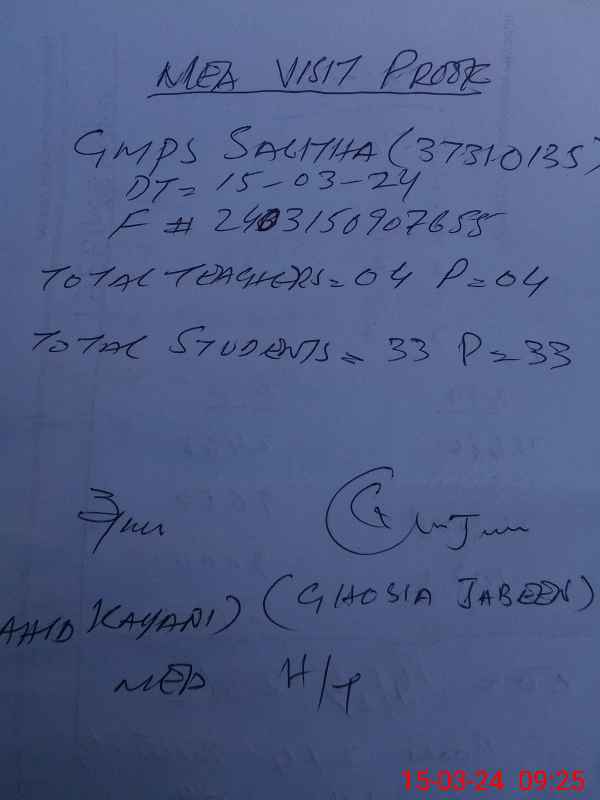 MEA VISIT PROOF
GMPS SALITHA (37310135)
DT= 15-03-24
F # 2403150907655
TOTAL TEACHERS= 04 P=04
TOTAL STUDENTS= 33 P=33
AHID KAYANI) (GHOSIA JABEEN)
MEA H/T
15-03-24 09:25